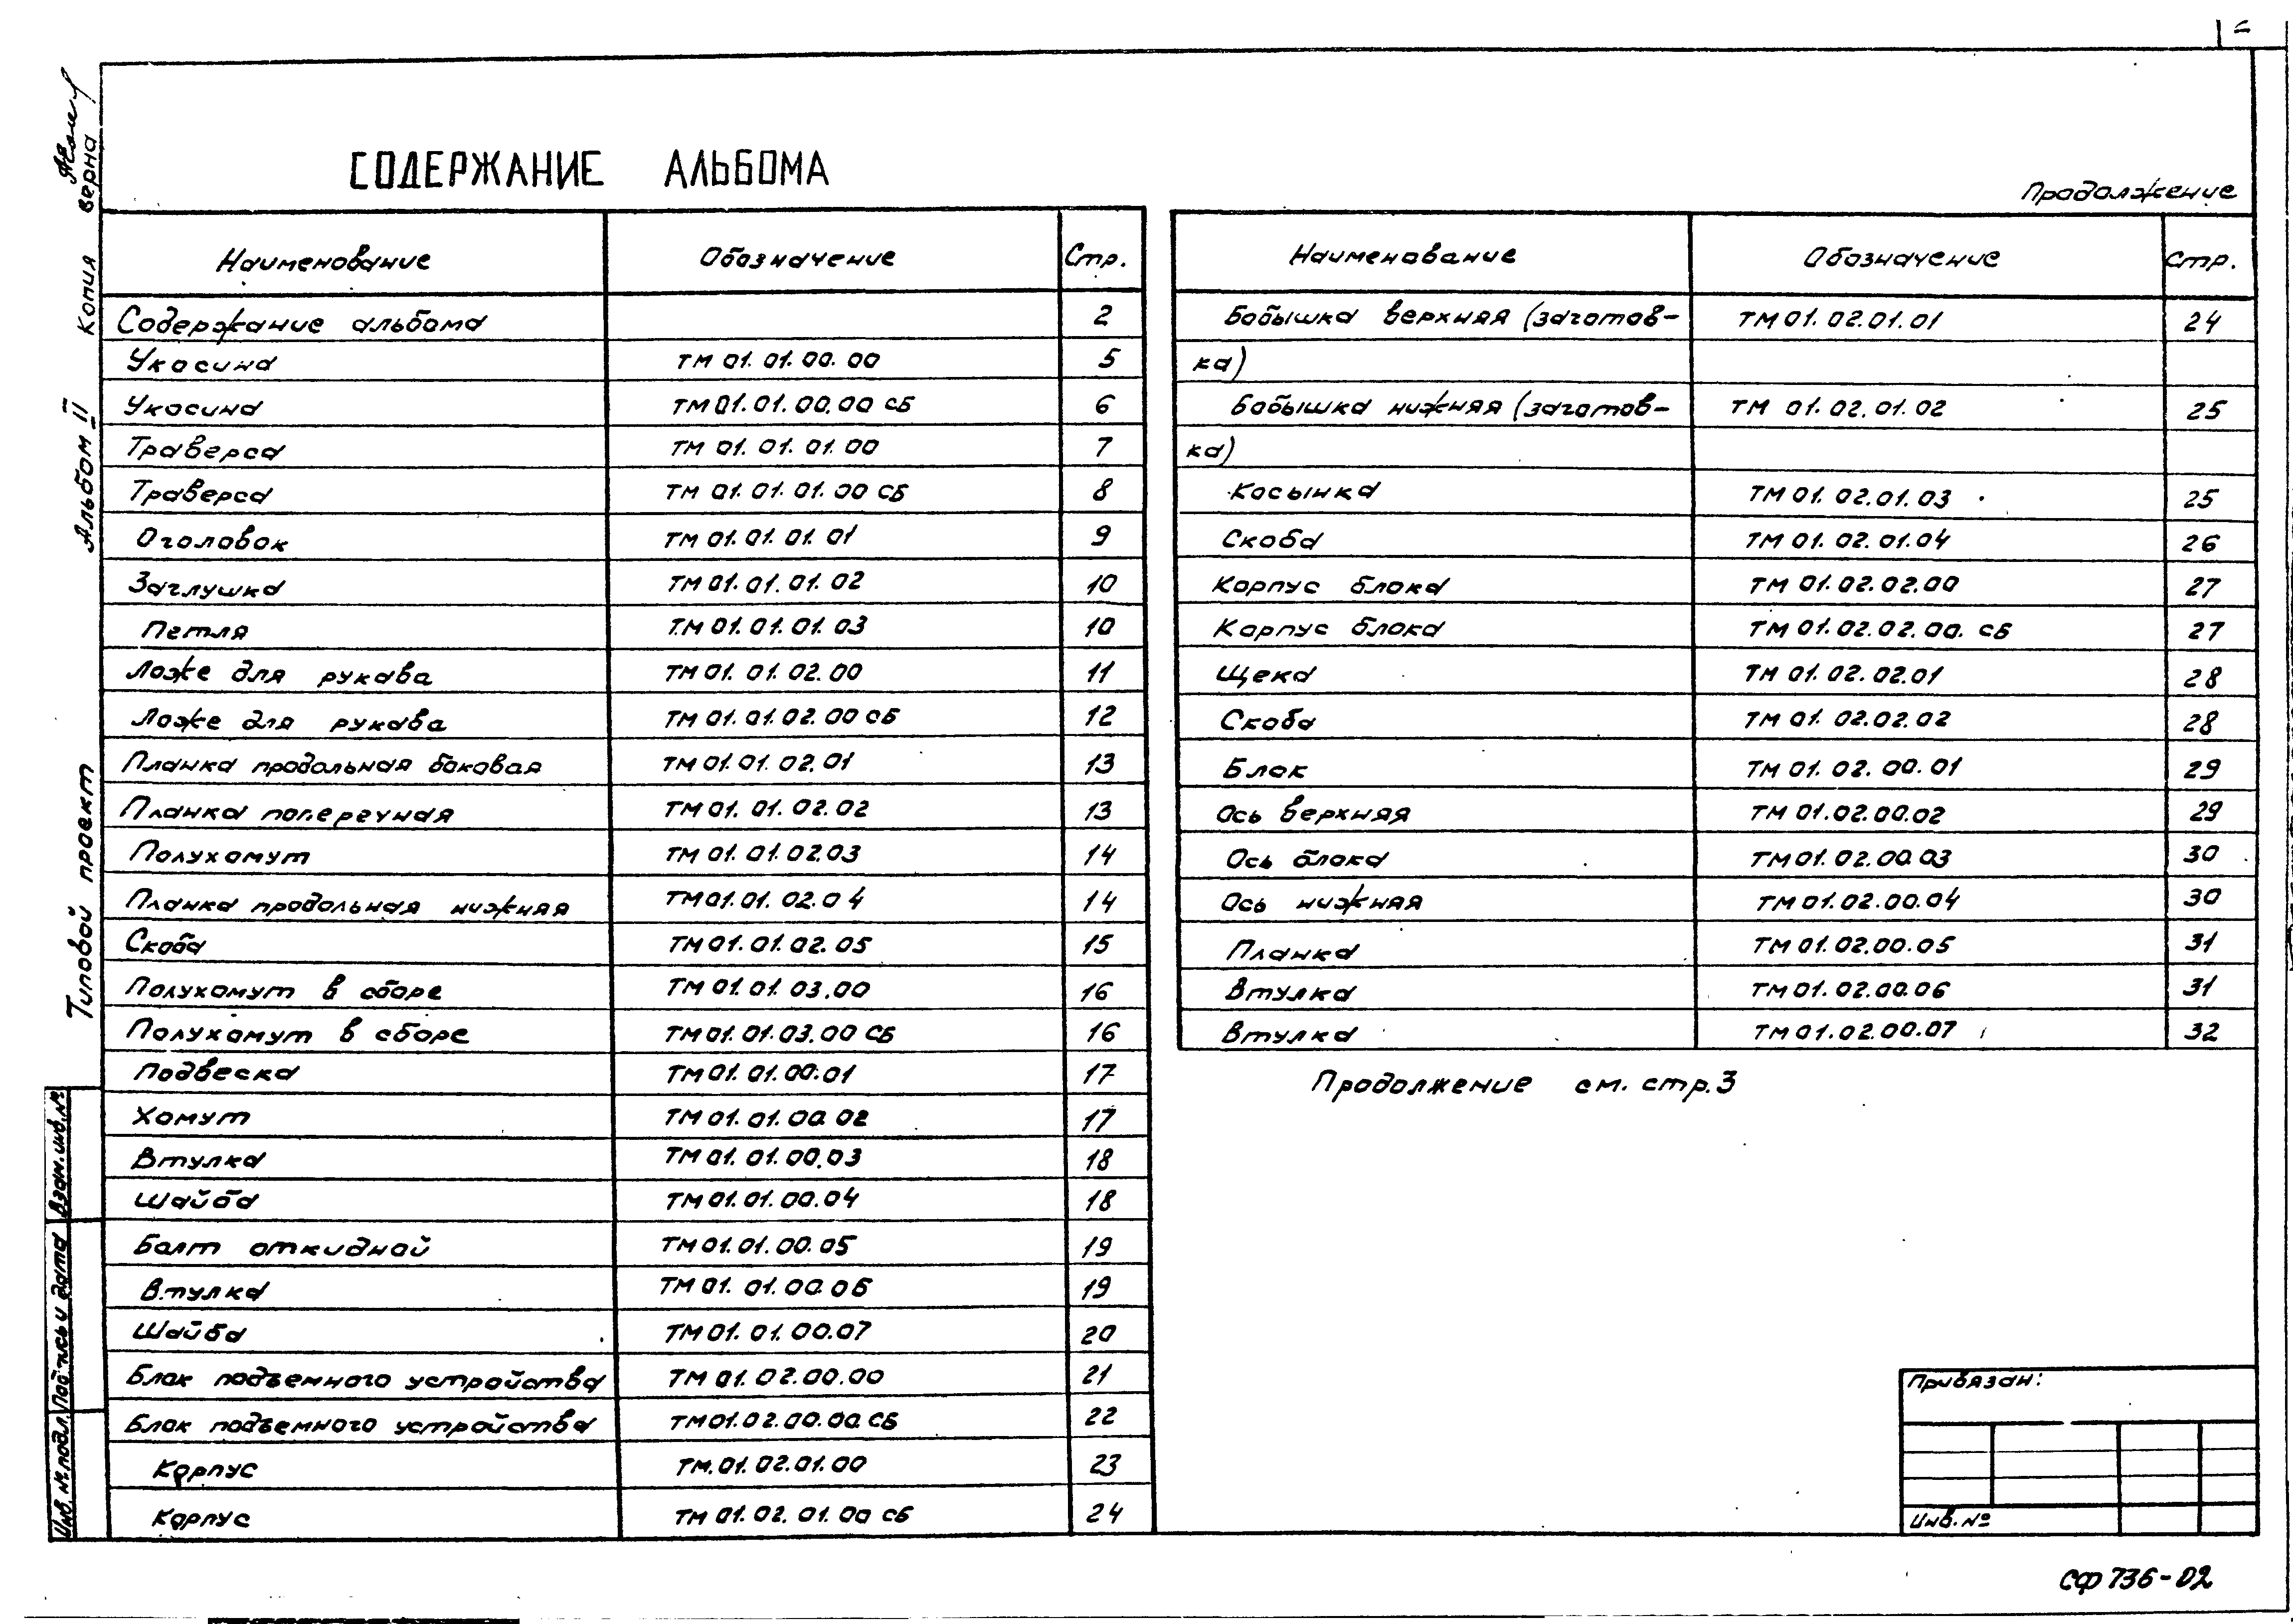 СОДЕРЖАНИЕ АЛЬБОМА
Наименование Обозначение Стр.
Содержание альбома 2
Укосина ТМ 01.01.00.00 5
Укосина ТМ 01.01.00.00 СБ 6
Траверса ТМ 01.01.01.00 7
Траверса ТМ 01.01.01.00 СБ 8
Оголовок ТМ 01.01.01.01 9
Заглушка ТМ 01.01.01.02 10
Петля ТМ 01.01.01.03 10
Ложе для рукава ТМ 01.01.02.00 11
Ложе для рукава ТМ 01.01.02.00 СБ 12
Планка продольная боковая ТМ 01.01.02.01 13
Планка поперечная ТМ 01.01.02.02 13
Полухомут ТМ 01.01.02.03 14
Планка продольная нижняя ТМ 01.01.02.04 14
Скоба ТМ 01.01.02.05 15
Полухомут в сборе ТМ 01.01.03.00 16
Полухомут в сборе ТМ 01.01.03.00 СБ 16
Подвеска ТМ 01.01.00.01 17
Хомут ТМ 01.01.00.02 17
Втулка ТМ 01.01.00.03 18
Шайба ТМ 01.01.00.04 18
Болт откидной ТМ 01.01.00.05 19
Втулка ТМ 01.01.00.06 19
Шайба ТМ 01.01.00.07 20
Блок подъемного устройства ТМ 01.02.00.00 21
Блок подъемного устройства ТМ 01.02.00.00 СБ 22
Корпус ТМ.01.02.01.00 23
Корпус ТМ 01.02.01.00 СБ 24
Продолжение
Наименование Обозначение Стр.
Бобышка верхняя (заготов- ТМ 01.02.01.01 24
ка)
Бобышка нижняя (заготов- ТМ 01.02.01.02 25
ка)
Косынка ТМ 01.02.01.03 25
Скоба ТМ 01.02.01.04 26
Корпус блока ТМ 01.02.02.00 27
Корпус блока ТМ 01.02.02.00. СБ 27
Щека ТМ 01.02.02.01 28
Скоба ТМ 01.02.02.02 28
Блок ТМ 01.02.00.01 29
Ось верхняя ТМ 01.02.00.02 29
Ось блока ТМ 01.02.00.03 30
Ось нижняя ТМ 01.02.00.04 30
Планка ТМ 01.02.00.05 31
Втулка ТМ 01.02.00.06 31
Втулка ТМ 01.02.00.07 32
Продолжение см. стр.3
Привязан:
Инв. №
СФ 736-02
Типовой проект Альбом II Копия верна
Инв. № подл. Подпись и дата Взам. инв. №